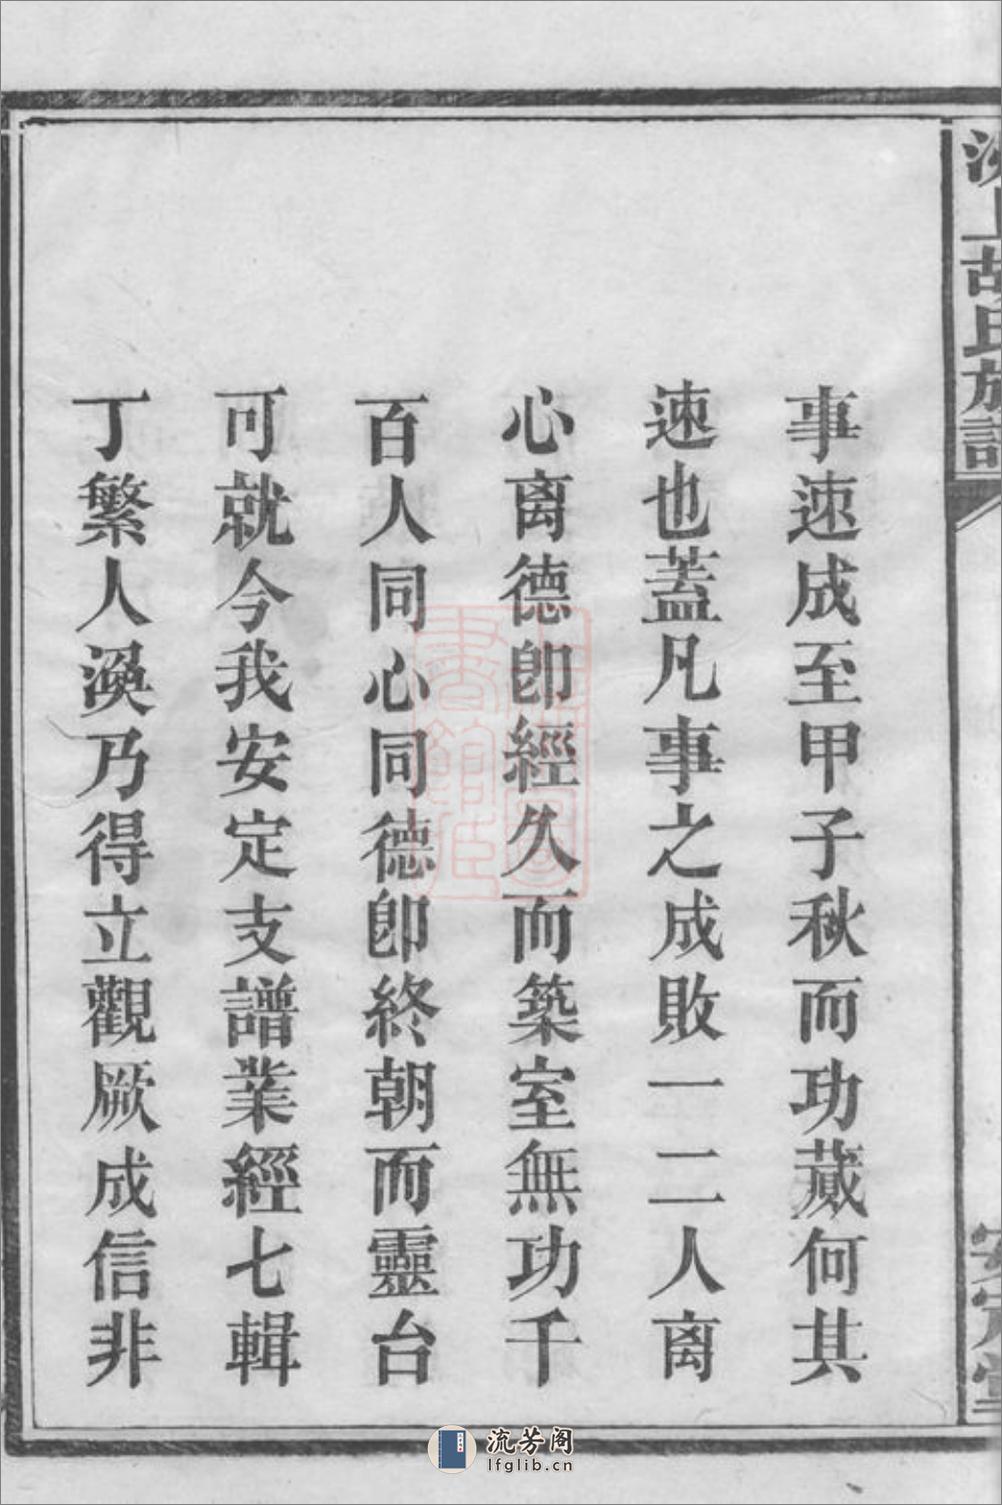 上胡氏族譜
安定堂
事速成至甲子秋而功蕆何其
速也蓋凡事之成敗一二人离
心离德卽經久而築室無功千
百人同心同德卽終朝而靈台
可就今我安定支譜業經七輯
丁繁人渙乃得立觀厥成信非
流芳阁
lfglib.cn